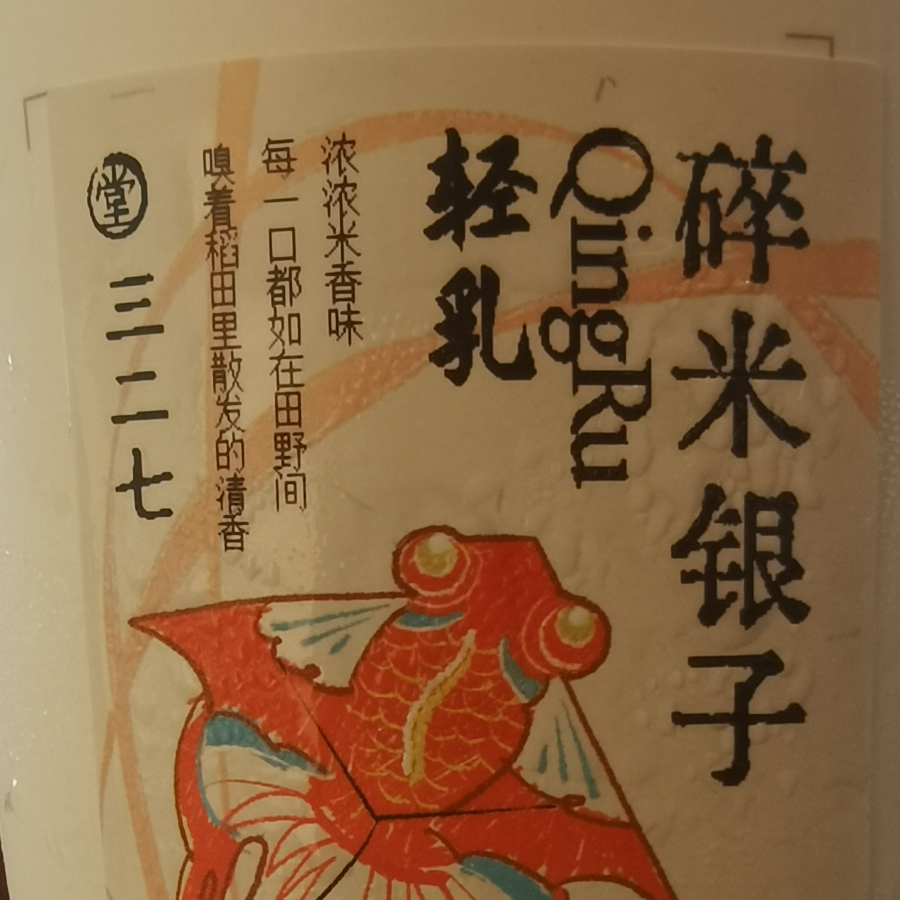 碎米银子
QingRu
轻乳
浓浓米香味
每一口都如在田野间
嗅着稻田里散发的清香
堂
三二七